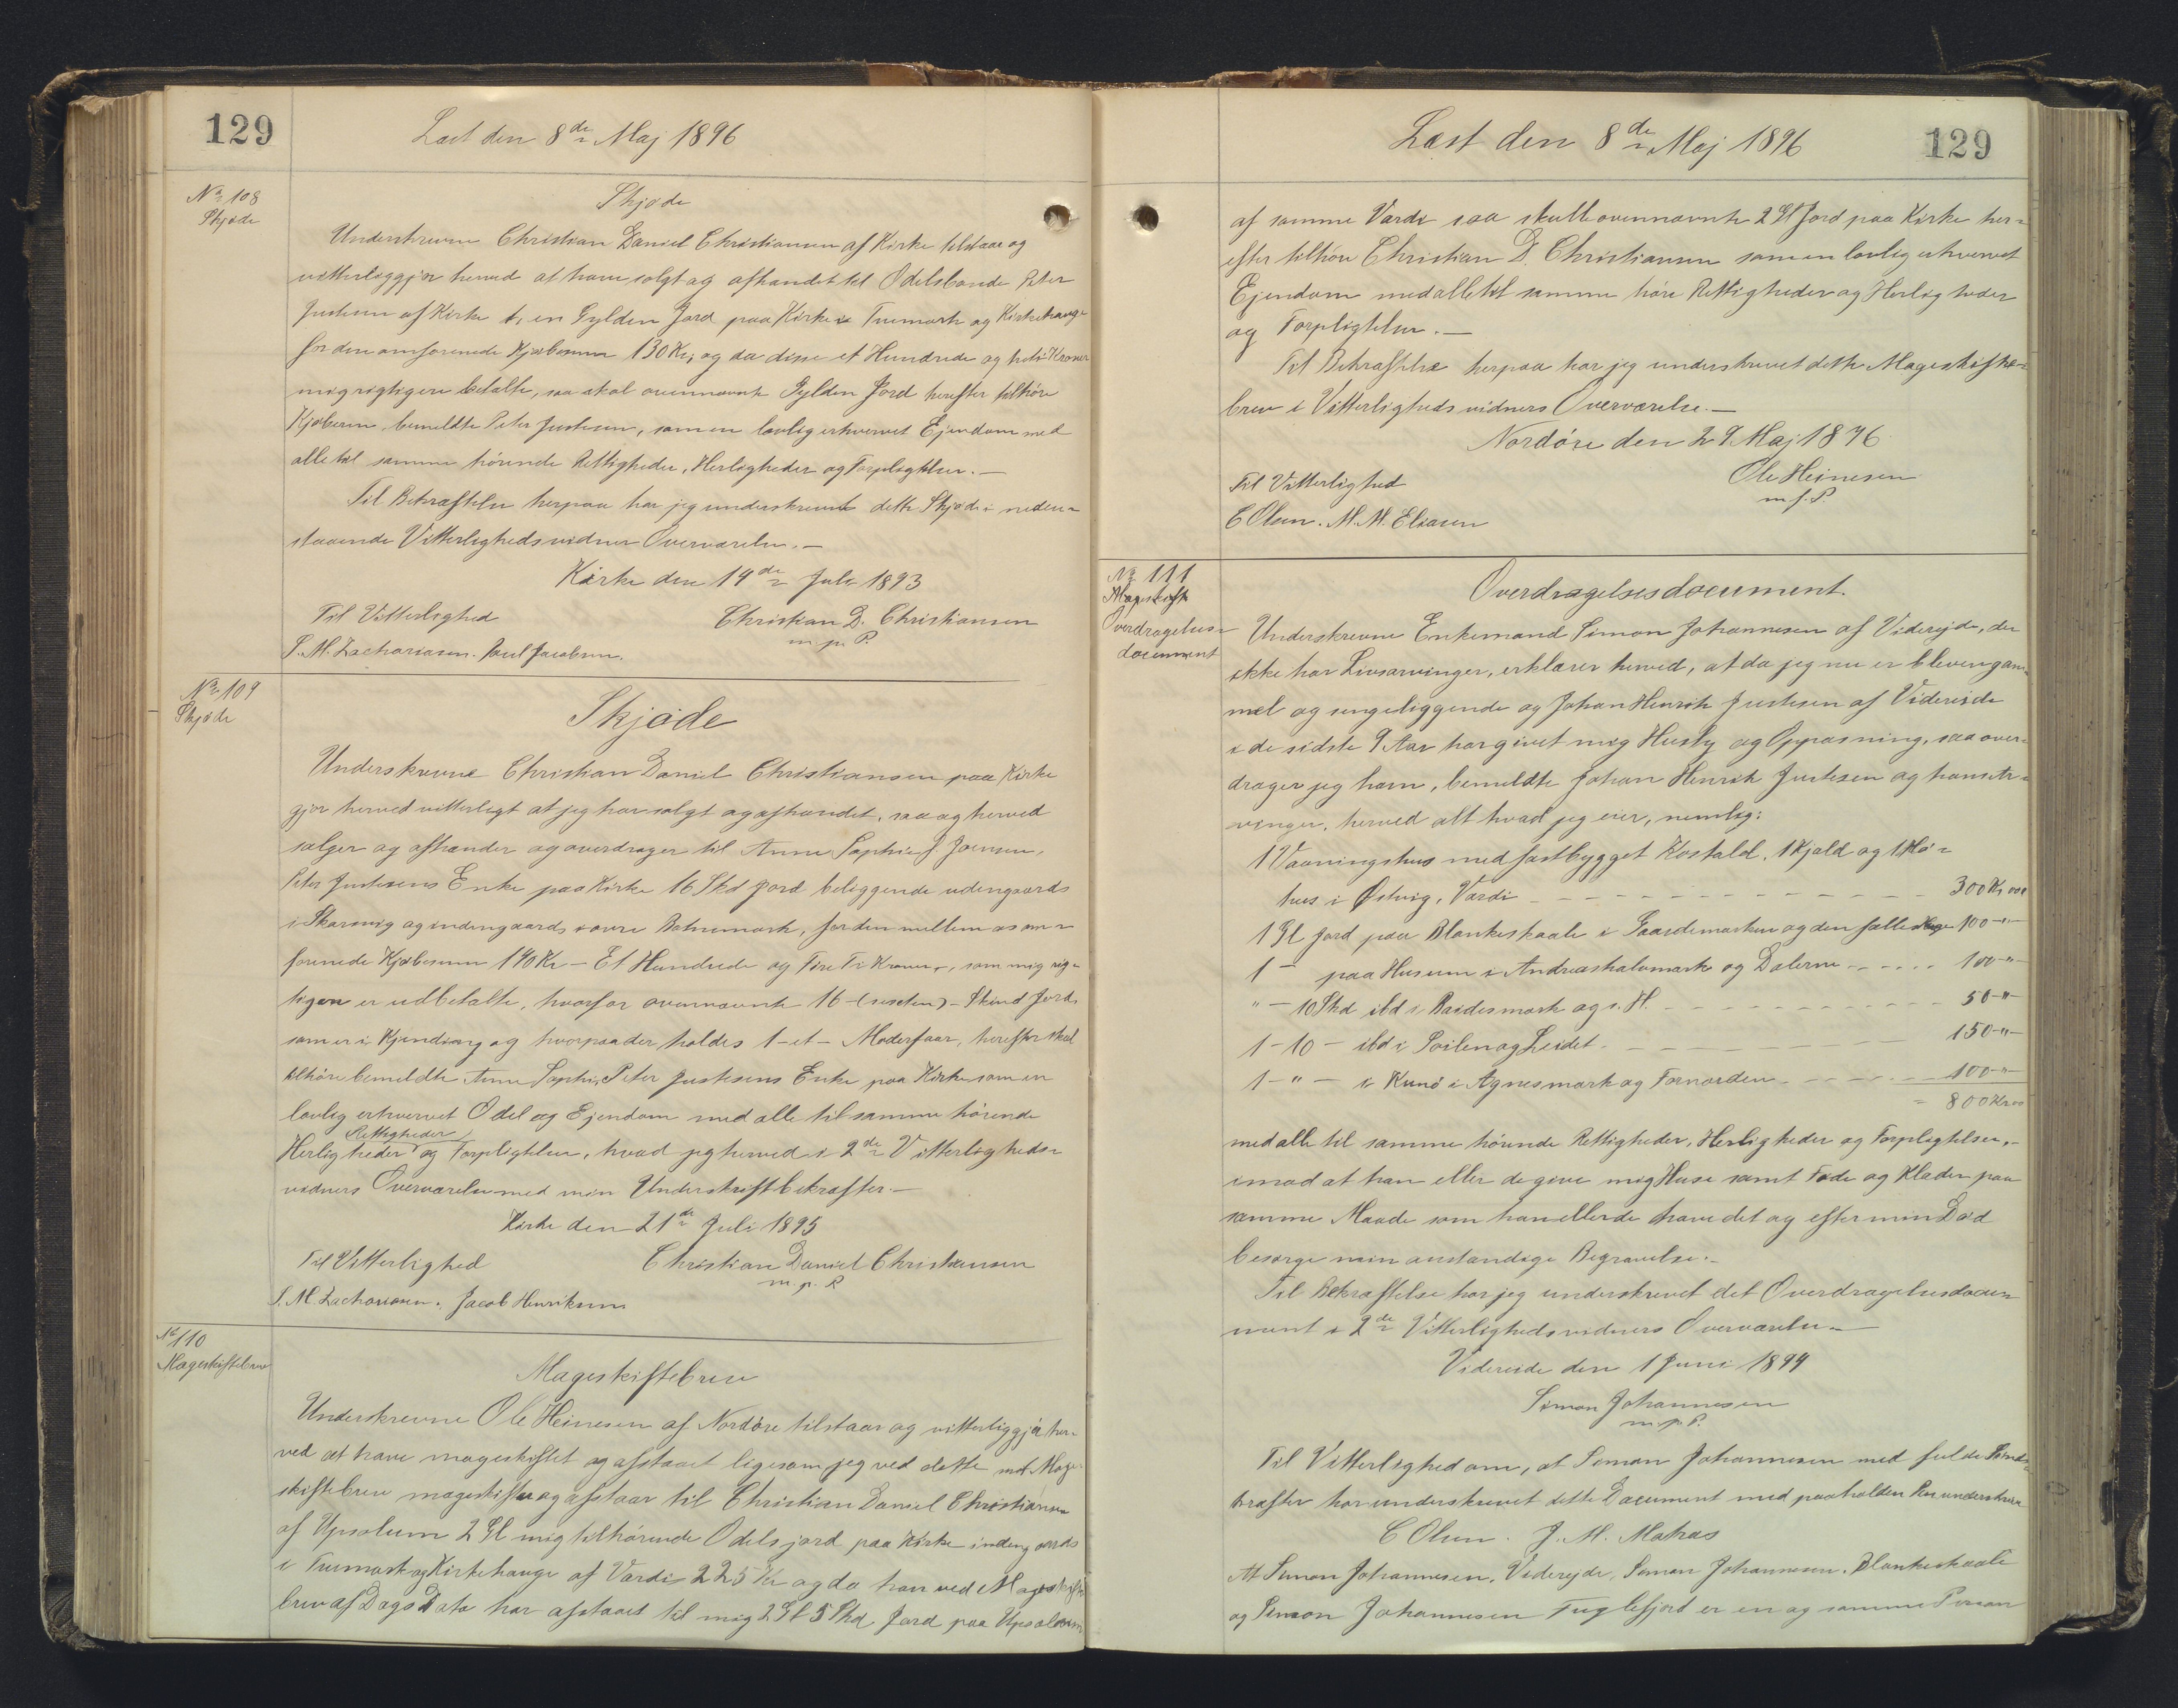 129
Læst den 8de Maj 1896
No 108
Skjøde
Skjøde
Underskrevne Christian Daniel Christiansen af Kirke tilstaar og
vitterliggjør herved at have solgt og afhændet til Odelsbonde Peter
Justesen af Kirke 1, en Gylden Jord paa Kirke i Tuemark og Kirkehauge
for den omforenede Kjøbesum 130 Kr, og da disse et Hundrede og tretti Kroner
mig rigtigen betalte, saa skal ovennævnte Gylden Jord herefter tilhöre
Kjøberen bemeldte Peter Justesen, som en lovlig erhvervet Ejendom med
alle til samme hörende Rettigheder, Herligheder og Forpligtelser.—
Til Bekræftelse herpaa har jeg underskrevet dette Skjøde i neden=
staaende Vitterlighedsvidners Overværelse.—
Kirke den 14de Juli 1893
Til Vitterlighed
Christian D. Christiansen
m. p. P.
S. M. Zachariasen. Poul Jacobsen.
No 109
Skjøde
Skjøde
Underskrevne Christian Daniel Christiansen paa Kirke
gjør herved vitterligt at jeg har solgt og afhændet, saa og herved
sælger og afhænder og overdrager til Anne Sophie J. Joensen,
Peter Justesens Enke paa Kirke 16 Skd Jord beliggende udengaards
i Skarsvig og indengaards i övre Bönemark, for den mellem os om=
forenede Kjøbesum 140 Kr — Et Hundrede og Fire Ti Kroner, som mig rig=
tigen er udbetalte, hvorfor ovennævnte 16 - (sexten) - Skind Jord,
som er i Kjending og hvorpaa der holdes 1 - et - Moderfaar, herefter skal
tilhöre bemeldte Anne Sophie, Peter Justesens Enke paa Kirke som en
lovlig erhvervet Odel og Ejendom med alle til samme hörende
Rettigheder
Herligheder og Forpligtelser, hvad jeg herved i 2de Vitterligheds=
vidners Overværelse med min Underskrift bekræfter.—
Kirke den 21de Juli 1895
Til Vitterlighed
Christian Daniel Christiansen
m. p. P
S. M. Zachariasen. Jacob Henriksen
No 110
Mageskiftebrev
Mageskiftebrev
Underskrevne Ole Heinesen af Nordöre tilstaar og vitterliggjör her=
ved at have mageskiftet og afstaaet ligesom jeg ved dette mit Mage=
skiftebrev mageskifter og afstaar til Christian Daniel Christiansen
af Upsalum 2 Gl mig tilhörende Odelsjord paa Kirke indengaards
i Tuemark og Kirkehauge af Værdi 225 Kr og da han ved Mageskifte
brev af Dags Dato har afstaaet til mig 2 Gl 5 Skd Jord paa Upsalum
Læst den 8de Maj 1896
129
af samme Værdi saa skulle ovennævnte 2 Gl Jord paa Kirke her=
efter tilhöre Christian D. Christiansen som en lovlig erhvervet
Ejendom med alle til samme höre Rettigheder og Herligheder
og Forpligtelser.—
Til Bekræftelse herpaa har jeg underskrevet dette Mageskifte=
brev i Vitterlighedsvidners Overværelse.—
Nordöre den 29 Maj 1896
Til Vitterlighed
Ole Heinesen
m. f. P
C Olsen. M. M. Eliasen
No 111
Mageskifte
Overdragelses=
document
Overdragelsesdocument.
Underskrevne Enkemand Simon Johannesen af Viderejde, der
ikke har Livsarvinger, erklærer herved, at da jeg nu er bleven gam=
mel og sengeliggende og Johan Henrik Justesen af Videreide
i de sidste 9 Aar har givet mig Husly og Oppasning, saa over=
drager jeg ham, bemeldte Johan Henrik Justesen og hans Ar=
vinger, herved alt hvad jeg eier, nemlig:
1 Vaaningshus med fastbygget Kostald, 1 Kjald og 1 Hö=
hus i Østvig, Værdi 300 Kr
1 Gl Jord paa Blankeskaale i Gaardemarken og den fælles Hauge 100 - " -
1 - paa Husum i Andreashalvmark og Dalerne 100 - " -
" - 10 Skd ibd i Baidesmark og s. H. 50 - " -
1 - 10 - ibd i Soilen og Leidet. 150 - " -
1 - " - i Kunö i Agnesmark og Fornorden 100 - " -
= 800 Kr
med alle til samme hörende Rettigheder, Herligheder og Forpligtelser,—
imod at han eller de give mig Huse samt Föde og Klæder paa
samme Maade som han eller de have det og efter min Död
besörge min anstændige Begravelse.—
Til Bekræftelse har jeg underskrevet det Overdragelsesdocu=
ment i 2de Vitterlighedsvidners Overværelse.—
Videreide den 1 Juni 1894
Simon Johannesen
m. p. P.
Til Vitterlighed om, at Simon Johannesen med fulde Sinds=
kræfter har underskrevet dette Document med paaholden Pen underskrive
C Olsen. J. M. Matras
At Simon Johannesen, Viderejde, Simon Johannesen, Blankeskaale
og Simon Johannesen Fuglefjord er en og samme Person